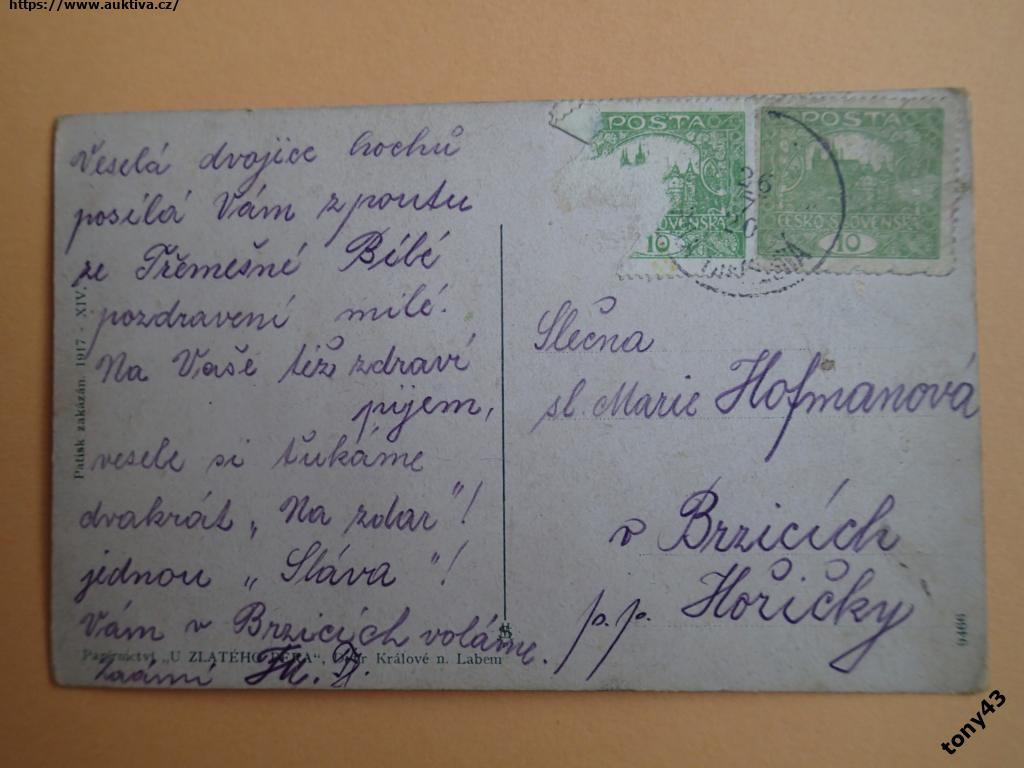 https://www.auktiva.cz/
Veselá dvojice hochů
posílá Vám z poutu
ze Třemešné Bíbé
pozdravení milé.
Na Vaše též zdraví
pijem,
vesele si ťukáme
dvakrát „Na zdar"!
jednou „Sláva"!
Vám v Brzicích voláme.
Papírnictví „U ZLATÉHO PERA", Dvůr Králové n. Labem
Patisk zakázán. 1917 - XIV.
POSTA
SLOVENSKÁ
10
POSTA
ČESKO-SLOVENSKÁ
10
26
20
Slečna
sl. Marie Hofmanová
v Brzicích
p. p. Hořičky
9466
tony43